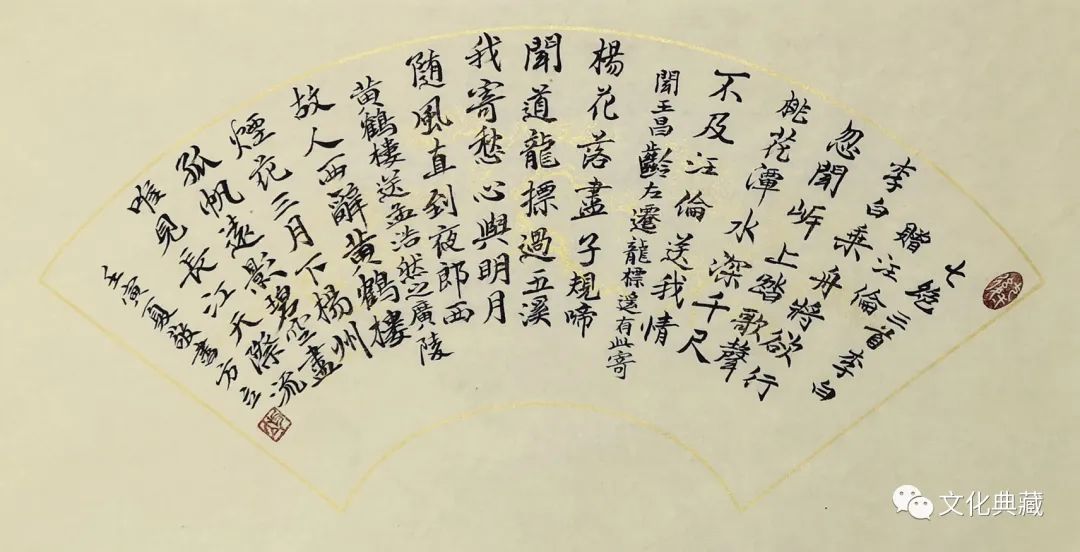 七絕三首李白
贈汪倫
李白乘舟將欲行
忽聞岸上踏歌聲
桃花潭水深千尺
不及汪倫送我情
聞王昌齡左遷龍標遙有此寄
楊花落盡子規啼
聞道龍摽過五溪
我寄愁心與明月
隨風直到夜郎西
黃鶴樓送孟浩然之廣陵
故人西辭黃鶴樓
煙花三月下楊州
孤帆遠影碧空盡
唯見長江天際流
壬寅夏敬書方立
文化典藏